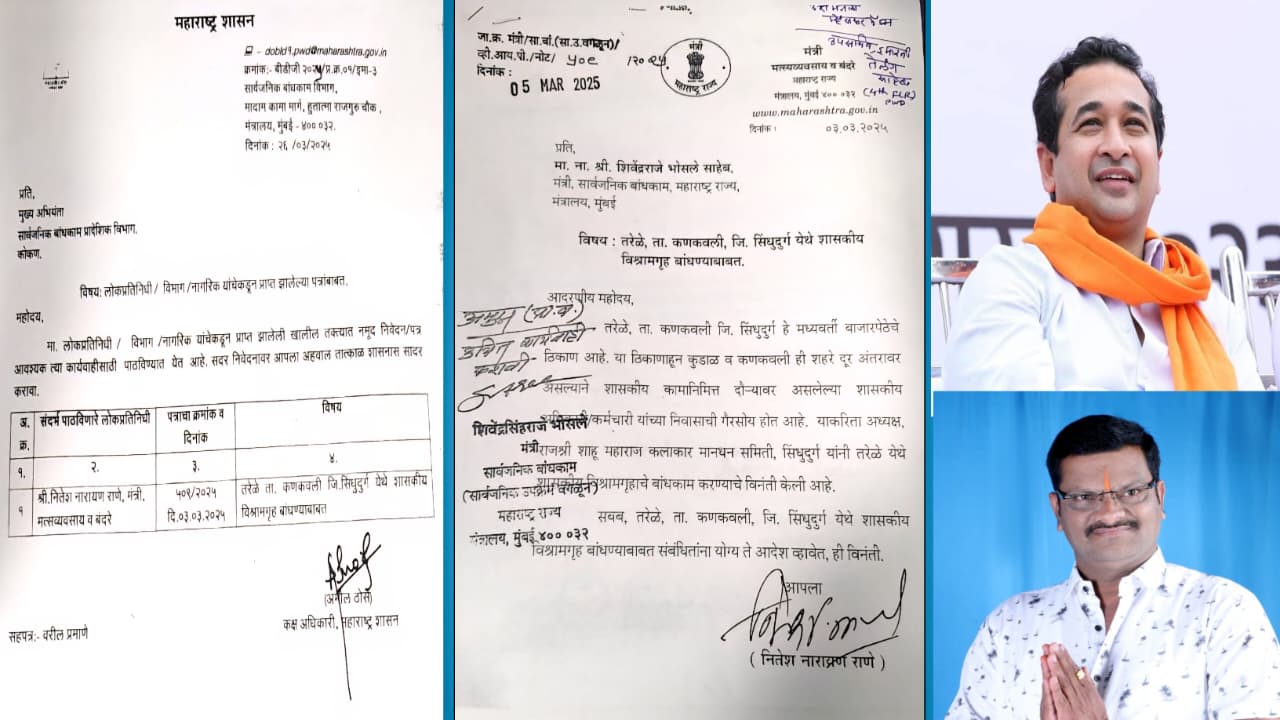 महाराष्ट्र शासन
dobld1.pwd@maharashtra.gov.in
क्रमांक:- बीडीजी २०२५/प्र.क्र.०१/इमा-३
सार्वजनिक बांधकाम विभाग,
मादाम कामा मार्ग, हुतात्मा राजगुरु चौक,
मंत्रालय, मुंबई - ४०० ०३२.
दिनांक : २६ /०३/२०२५
प्रति,
मुख्य अभियंता
सार्वजनिक बांधकाम प्रादेशिक विभाग,
कोकण.
विषय: लोकप्रतिनिधी / विभाग /नागरिक यांचेकडून प्राप्त झालेल्या पत्रांबाबत.
महोदय,
मा. लोकप्रतिनिधी / विभाग /नागरिक यांचेकडून प्राप्त झालेली खालील तक्त्यात नमूद निवेदन/पत्र
आवश्यक त्या कार्यवाहीसाठी पाठविण्यात येत आहे. सदर निवेदनावर आपला अहवाल तात्काळ शासनास सादर
करावा.
अ. क्र. संदर्भ पाठविणारे लोकप्रतिनिधी पत्राचा क्रमांक व दिनांक विषय
१. २. ३. ४.
१ श्री.नितेश नारायण राणे, मंत्री, मत्सव्यवसाय व बंदरे ५०९/२०२५ दि.०३.०३.२०२५ तरेळे ता. कणकवली जि.सिंधुदुर्ग येथे शासकीय विश्रामगृह बांधण्याबाबत
(अमोल ठोसे)
कक्ष अधिकारी, महाराष्ट्र शासन
सहपत्र:- वरील प्रमाणे
जा.क्र. मंत्री/सा.बां.(सा.उ.वगळून)/
व्ही.आय.पी./नोट/ ४०९ /२०२५
दिनांक :
05 MAR 2025
मंत्री
महाराष्ट्र राज्य
मंत्री
मत्स्यव्यवसाय व बंदरे
महाराष्ट्र राज्य
मंत्रालय, मुंबई ४०० ०३२
(4th FLR)
PWD
www.maharashtra.gov.in
दिनांक : ०३.०३.२०२५
प्रति,
मा. ना. श्री. शिवेंद्रराजे भोसले साहेब,
मंत्री, सार्वजनिक बांधकाम, महाराष्ट्र राज्य,
मंत्रालय, मुंबई
विषय : तरेळे, ता. कणकवली, जि. सिंधुदुर्ग येथे शासकीय
विश्रामगृह बांधण्याबाबत.
आदरणीय महोदय,
उचित कार्यवाही
करावी
तरेळे, ता. कणकवली जि. सिंधुदुर्ग हे मध्यवर्ती बाजारपेठेचे
ठिकाण आहे. या ठिकाणाहून कुडाळ व कणकवली ही शहरे दूर अंतरावर
असल्याने शासकीय कामानिमित्त दौऱ्यावर असलेल्या शासकीय
/कर्मचारी यांच्या निवासाची गैरसोय होत आहे. याकरिता अध्यक्ष,
राजश्री शाहू महाराज कलाकार मानधन समिती, सिंधुदुर्ग यांनी तरेळे येथे
शासकीय विश्रामगृहाचे बांधकाम करण्याचे विनंती केली आहे.
सबब, तरेळे, ता. कणकवली, जि. सिंधुदुर्ग येथे शासकीय
विश्रामगृह बांधण्याबाबत संबंधितांना योग्य ते आदेश व्हावेत, ही विनंती.
शिवेंद्रसिंहराजे भोसले
मंत्री
सार्वजनिक बांधकाम
(सार्वजनिक उपक्रम वगळून)
महाराष्ट्र राज्य
मंत्रालय, मुंबई ४०० ०३२
आपला
( नितेश नारायण राणे )